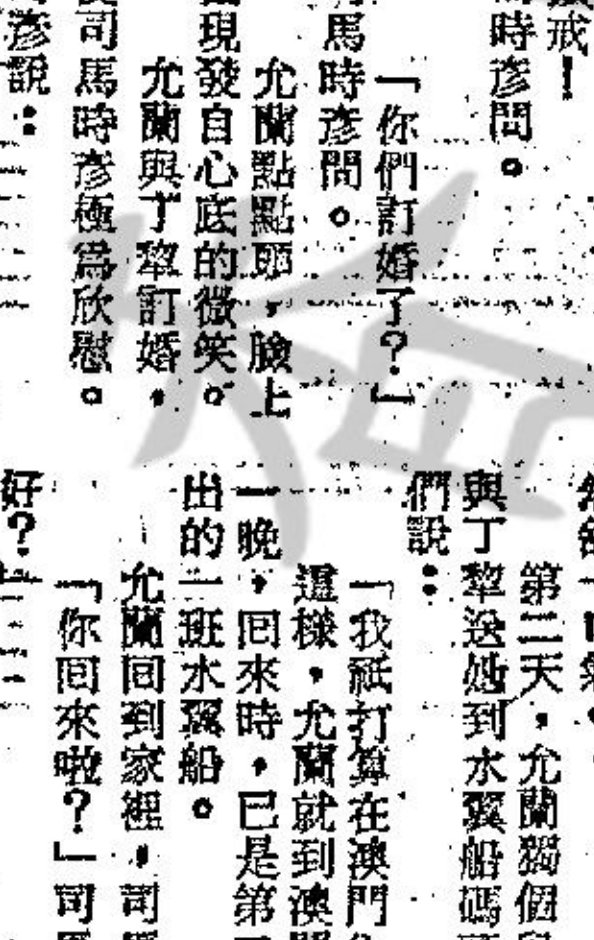 戒！
時彥問。
「你們訂婚了？」
馬時彥問。
允蘭點點頭，臉上
現發自心底的微笑。
允蘭與丁犂訂婚，
司馬時彥極爲欣慰。
彥說：
第二天，允蘭獨個
與丁犂送她到水翼船碼
們說：
「我祇打算在澳門
這樣，允蘭就到澳
一晚，回來時，已是第
出的一班水翼船。
允蘭回到家裡，司
「你回來啦？」司
好？」